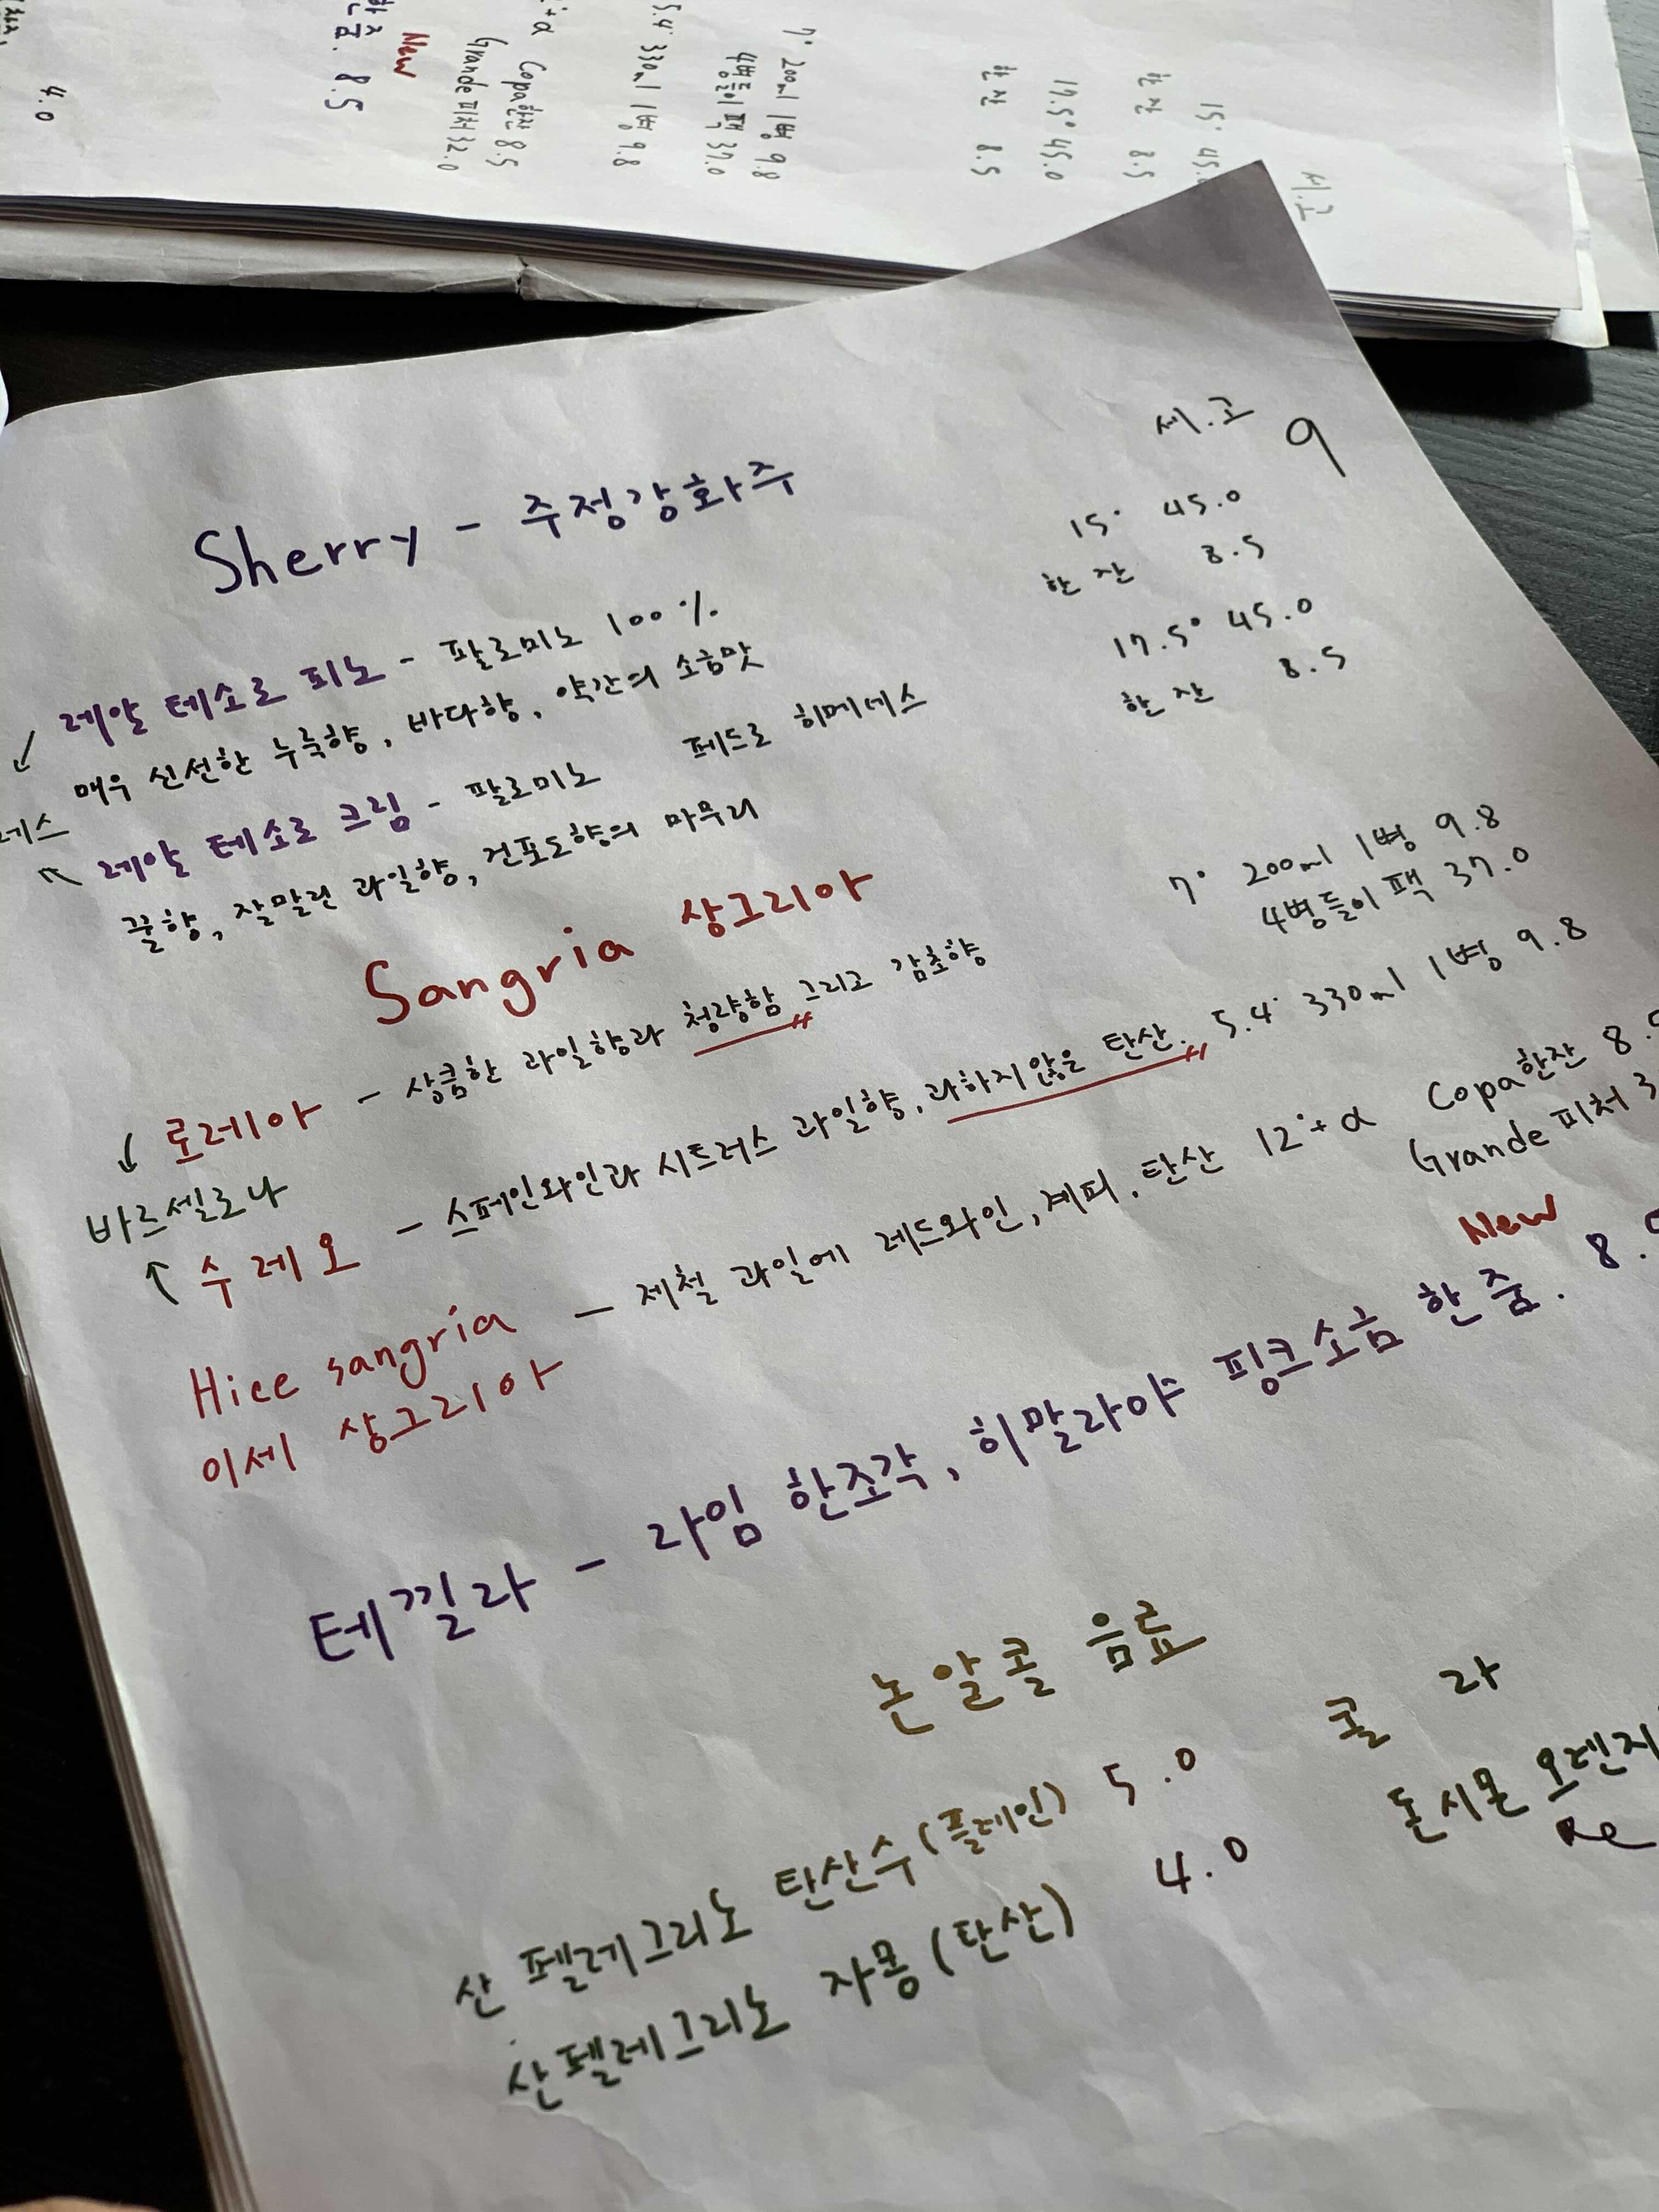 4.0
한 줌. 8.5
New
+α Copa한잔 8.5
Grande 피처 32.0
5.4° 330ml 1병 9.8
7° 200ml 1병 9.8
4병들이 팩 37.0
17.5° 45.0
한 잔 8.5
15° 45.
한 잔 8.5
세.고
세.고 9
Sherry - 주정강화주
15° 45.0
한 잔 8.5
↙ 레알 테소로 피노 - 팔로미노 100%
17.5° 45.0
매우 신선한 누룩향, 바다향, 약간의 소금맛
한 잔 8.5
레스
↖ 레알 테소로 크림 - 팔로미노 페드로 히메네스
꿀향, 잘말린 과일향, 건포도향의 마무리
Sangria 상그리아
7° 200ml 1병 9.8
4병들이 팩 37.0
↓ 로레아 - 상큼한 과일향과 청량함 그리고 감초향
바르셀로나
↑ 수레오 - 스페인와인과 시트러스 과일향, 과하지않은 탄산. 5.4° 330ml 1병 9.8
Hice sangria - 제철 과일에 레드와인, 계피, 탄산 12°+α Copa한잔 8.
이세 상그리아
Grande 피처 3
New
테낄라 - 라임 한조각, 히말라야 핑크소금 한 줌. 8.
논알콜 음료
산 펠레그리노 탄산수(플레인) 5.0 콜 라
산펠레그리노 자몽(탄산) 4.0 돈시몬 오렌지